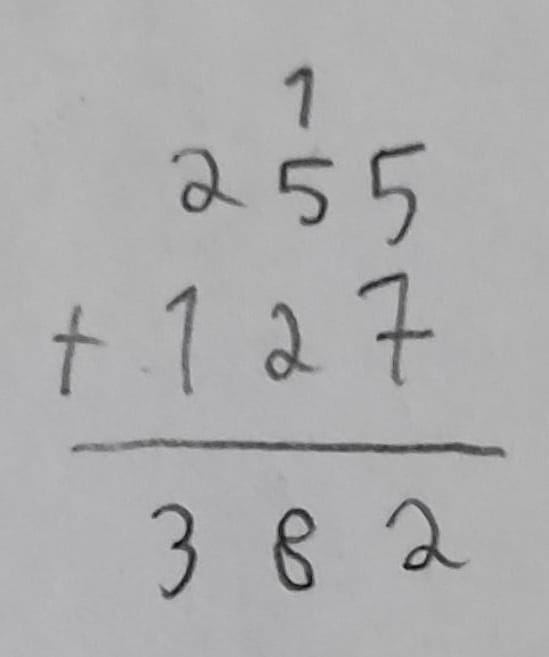 1
255
+ 127
382